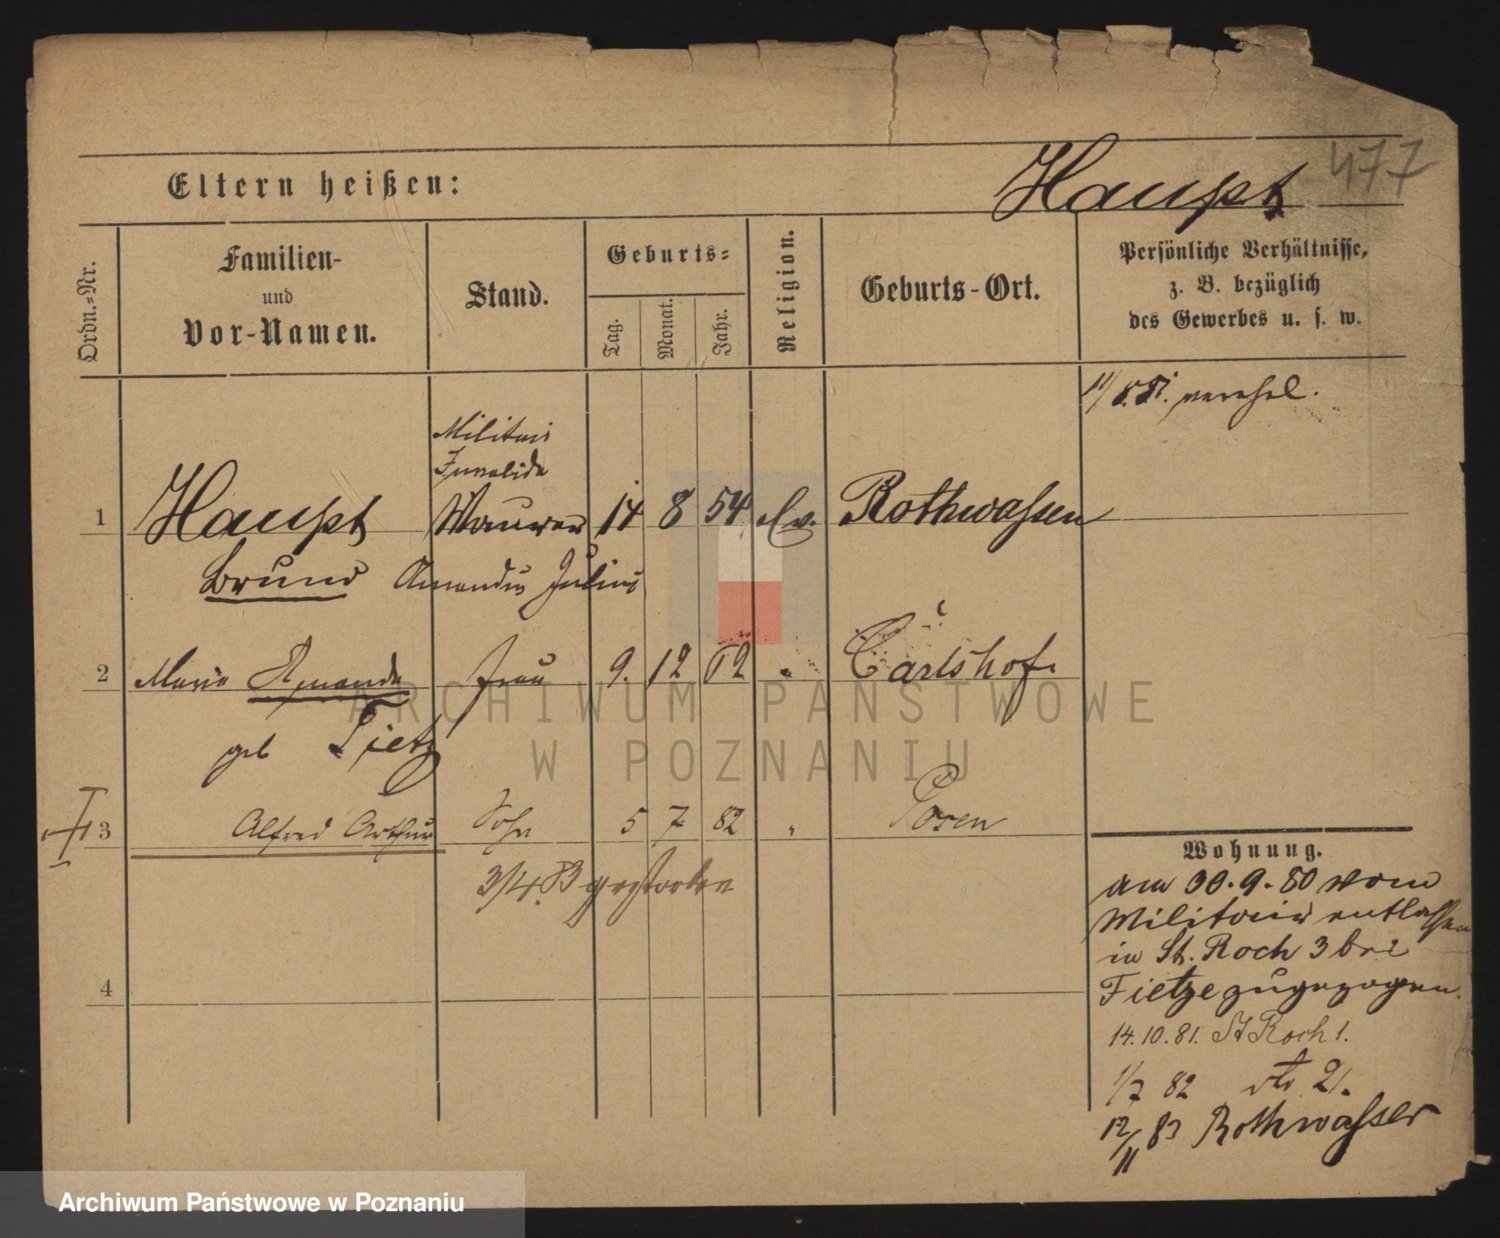 Haupt 477
Eltern heißen:
Ordn.-Nr.
Familien-
und
Vor-Namen.
Stand.
Geburts-
Tag.
Monat.
Jahr.
Religion.
Geburts-Ort.
Persönliche Verhältnisse,
z. B. bezüglich
des Gewerbes u. s. w.
verehel.
Militair
Invalide
1 Haupt Maurer 14 8 54 Ev. Rothwasser
Bruno Amandus Julius
2 Marie Amanda Frau 9. 12 62 " Carlshof.
geb Tietz
3 Alfred Arthur Sohn 5 7 82 " Posen
3/4 83 gestorben
4
Wohnung.
am 30.9.80 vom
Militair entlassen
in St. Roch 3 bei
Tietze zugezogen.
14.10.81. St Roch 1.
1/7 82 dto 21.
12/11 83 Rothwasser
ARCHIWUM PAŃSTWOWE
W POZNANIU
Archiwum Państwowe w Poznaniu